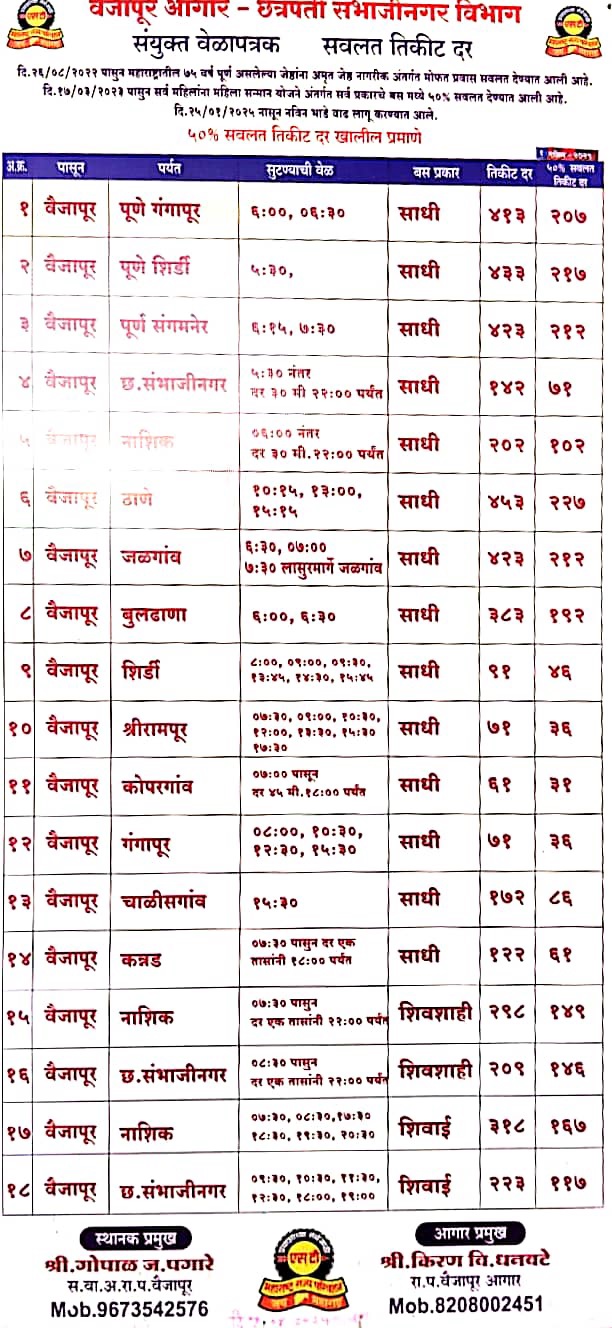 वैजापूर आगार - छत्रपती संभाजीनगर विभाग
संयुक्त वेळापत्रक सवलत तिकीट दर
दि.२६/०८/२०२२ पासुन महाराष्ट्रातील ७५ वर्ष पूर्ण असलेल्या जेष्ठांना अमृत जेष्ठ नागरीक अंतर्गत मोफत प्रवास सवलत देण्यात आली आहे.
दि.१७/०३/२०२३ पासुन सर्व महिलांना महिला सन्मान योजने अंतर्गत सर्व प्रकारचे बस मध्ये ५०% सवलत देण्यात आली आहे.
दि.२५/०१/२०२५ नासून नविन भाडे वाढ लागू करण्यात आले.
५०% सवलत तिकीट दर खालील प्रमाणे
अ.क्र. पासून पर्यंत सुटण्याची वेळ बस प्रकार तिकीट दर ५०% सवलत तिकीट दर
१ वैजापूर पूणे गंगापूर ६:००, ०६:३० साधी ४१३ २०७
२ वैजापूर पूणे शिर्डी ५:३०, साधी ४३३ २१७
३ वैजापूर पूर्ण संगमनेर ६:१५, ७:३० साधी ४२३ २१२
४ वैजापूर छ.संभाजीनगर ५:३० नंतर दर ३० मी २२:०० पर्यंत साधी १४२ ७१
५ वैजापूर नाशिक ०६:०० नंतर दर ३० मी.२२:०० पर्यंत साधी २०२ १०२
६ वैजापूर ठाणे १०:१५, १३:००, १५:१५ साधी ४५३ २२७
७ वैजापूर जळगांव ६:३०, ०७:०० ७:३० लासुरमार्गे जळगांव साधी ४२३ २१२
८ वैजापूर बुलढाणा ६:००, ६:३० साधी ३८३ १९२
९ वैजापूर शिर्डी ८:००, ०९:००, ०९:३०, १३:४५, १४:३०, १५:४५ साधी ९१ ४६
१० वैजापूर श्रीरामपूर ०७:३०, ०९:००, १०:३०, १२:००, १३:३०, १५:३० १७:३० साधी ७१ ३६
११ वैजापूर कोपरगांव ०७:०० पासून दर ४५ मी.१८:०० पर्यंत साधी ६१ ३१
१२ वैजापूर गंगापूर ०८:००, १०:३०, १२:३०, १५:३० साधी ७१ ३६
१३ वैजापूर चाळीसगांव १५:३० साधी १७२ ८६
१४ वैजापूर कन्नड ०७:३० पासुन दर एक तासांनी १८:०० पर्यंत साधी १२२ ६१
१५ वैजापूर नाशिक ०७:३० पासुन दर एक तासांनी २२:०० पर्यंत शिवशाही २९८ १४९
१६ वैजापूर छ.संभाजीनगर ०८:३० पासुन दर एक तासांनी २२:०० पर्यंत शिवशाही २०९ १४६
१७ वैजापूर नाशिक ०७:३०, ०८:३०,१७:३० १८:३०, १९:३०, २०:३० शिवाई ३१८ १६७
१८ वैजापूर छ.संभाजीनगर ०९:३०, १०:३०, ११:३०, १२:३०, १८:००, १९:०० शिवाई २२३ ११७
स्थानक प्रमुख
श्री.गोपाळ ज.पगारे
स.वा.अ.रा.प.वैजापूर
Mob.9673542576
एस टी
आगार प्रमुख
श्री.किरण वि.धनवटे
रा.प.वैजापूर आगार
Mob.8208002451